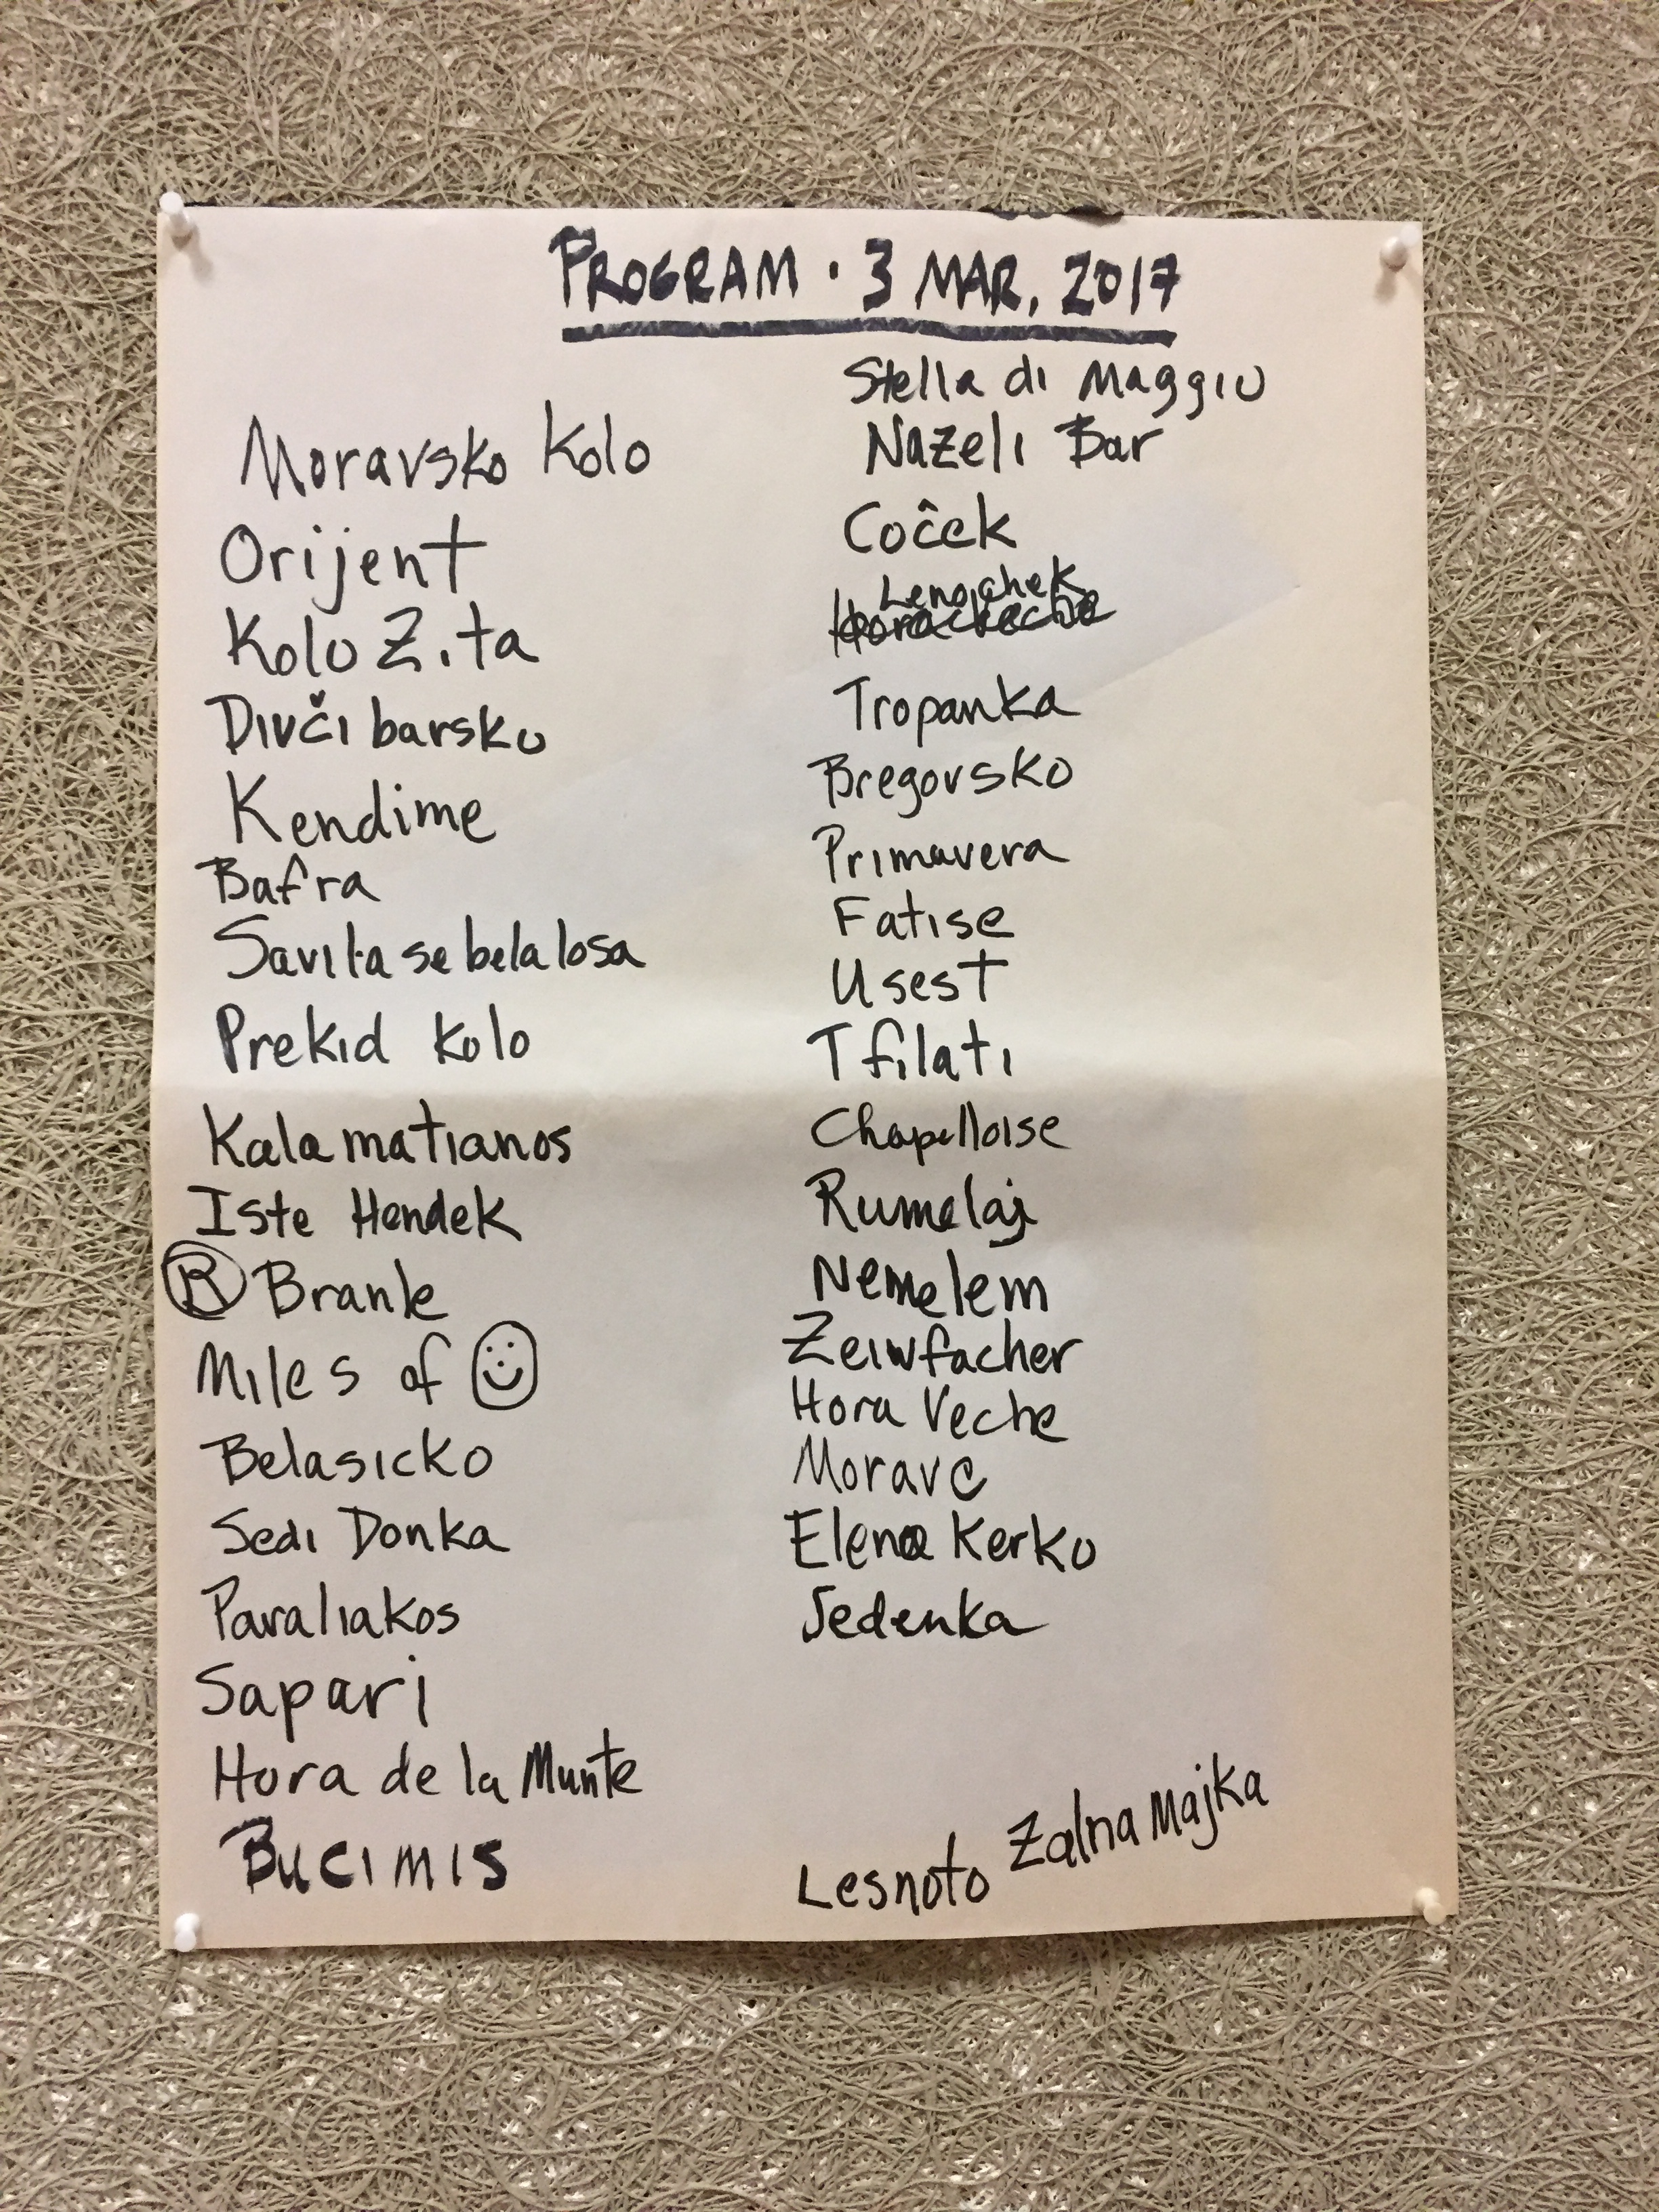 PROGRAM · 3 MAR, 2017
Moravsko Kolo
Orijent
Kolo Zita
Divči barsko
Kendime
Bafra
Savila se bela losa
Prekid Kolo
Kalamatianos
Iste Hendek
R Branle
Miles of
Belasicko
Sedi Donka
Paraliakos
Sapari
Hora de la Munte
Bucimis
Stella di Maggio
Nazeli Bar
Coĉek
Lenochek
Tropanka
Bregovsko
Primavera
Fatise
Usest
Tfilati
Chapelloise
Rumelaj
Nemelem
Zeiwfacher
Hora Veche
Moravc
Elena Kerko
Sedenka
Lesnoto Zalna Majka